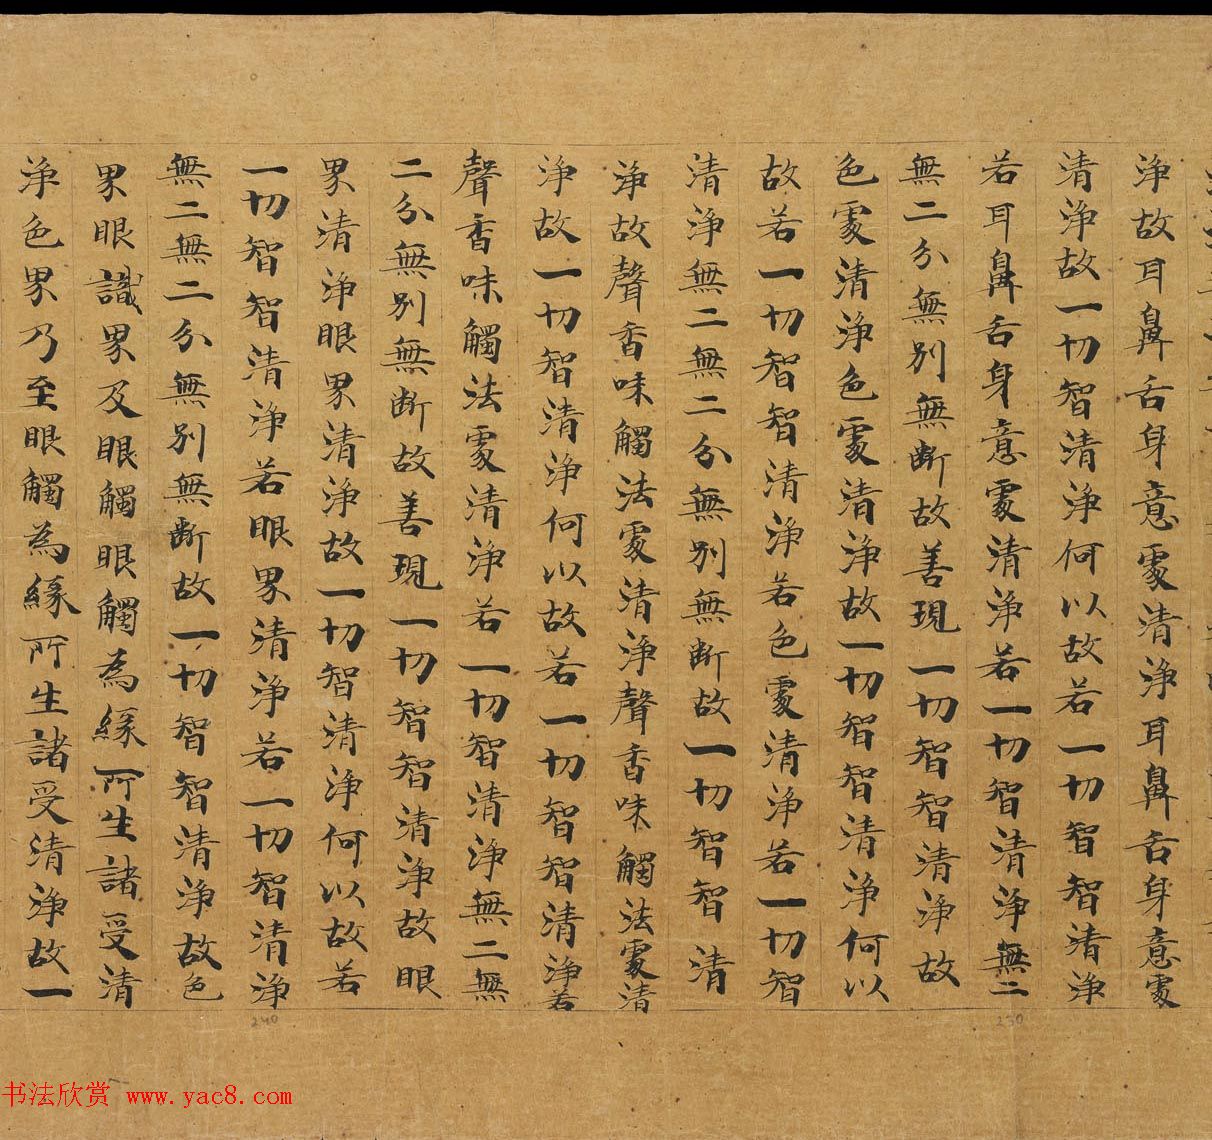 淨故耳鼻舌身意處清淨耳鼻舌身意處
清淨故一切智清淨何以故若一切智智清淨
若耳鼻舌身意處清淨若一切智清淨無二
無二分無別無断故善現一切智智清淨故
色處清淨色處清淨故一切智智清淨何以
故若一切智智清淨若色處清淨若一切智
清淨無二無二分無別無断故一切智智清
淨故聲香味觸法處清淨聲香味觸法處清
淨故一切智清淨何以故若一切智智清淨若
聲香味觸法處清淨若一切智清淨無二無
二分無別無断故善現一切智智清淨故眼
界清淨眼界清淨故一切智清淨何以故若
一切智智清淨若眼界清淨若一切智清淨
無二無二分無別無断故一切智智清淨故色
界眼識界及眼觸眼觸為緣所生諸受清
淨色界乃至眼觸為緣所生諸受清淨故一
230
240
书法欣赏 www.yac8.com